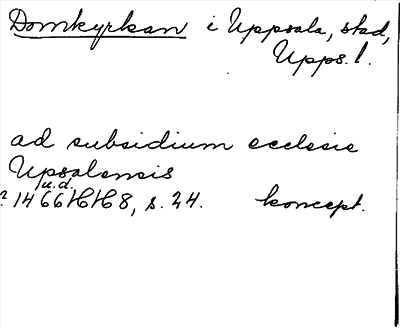 Domkyrkan i Uppsala, stad,
Upps. l.
ad subsidium ecclesie
Upsalensis
u.d.
? 1466 8, s. 24. koncept.